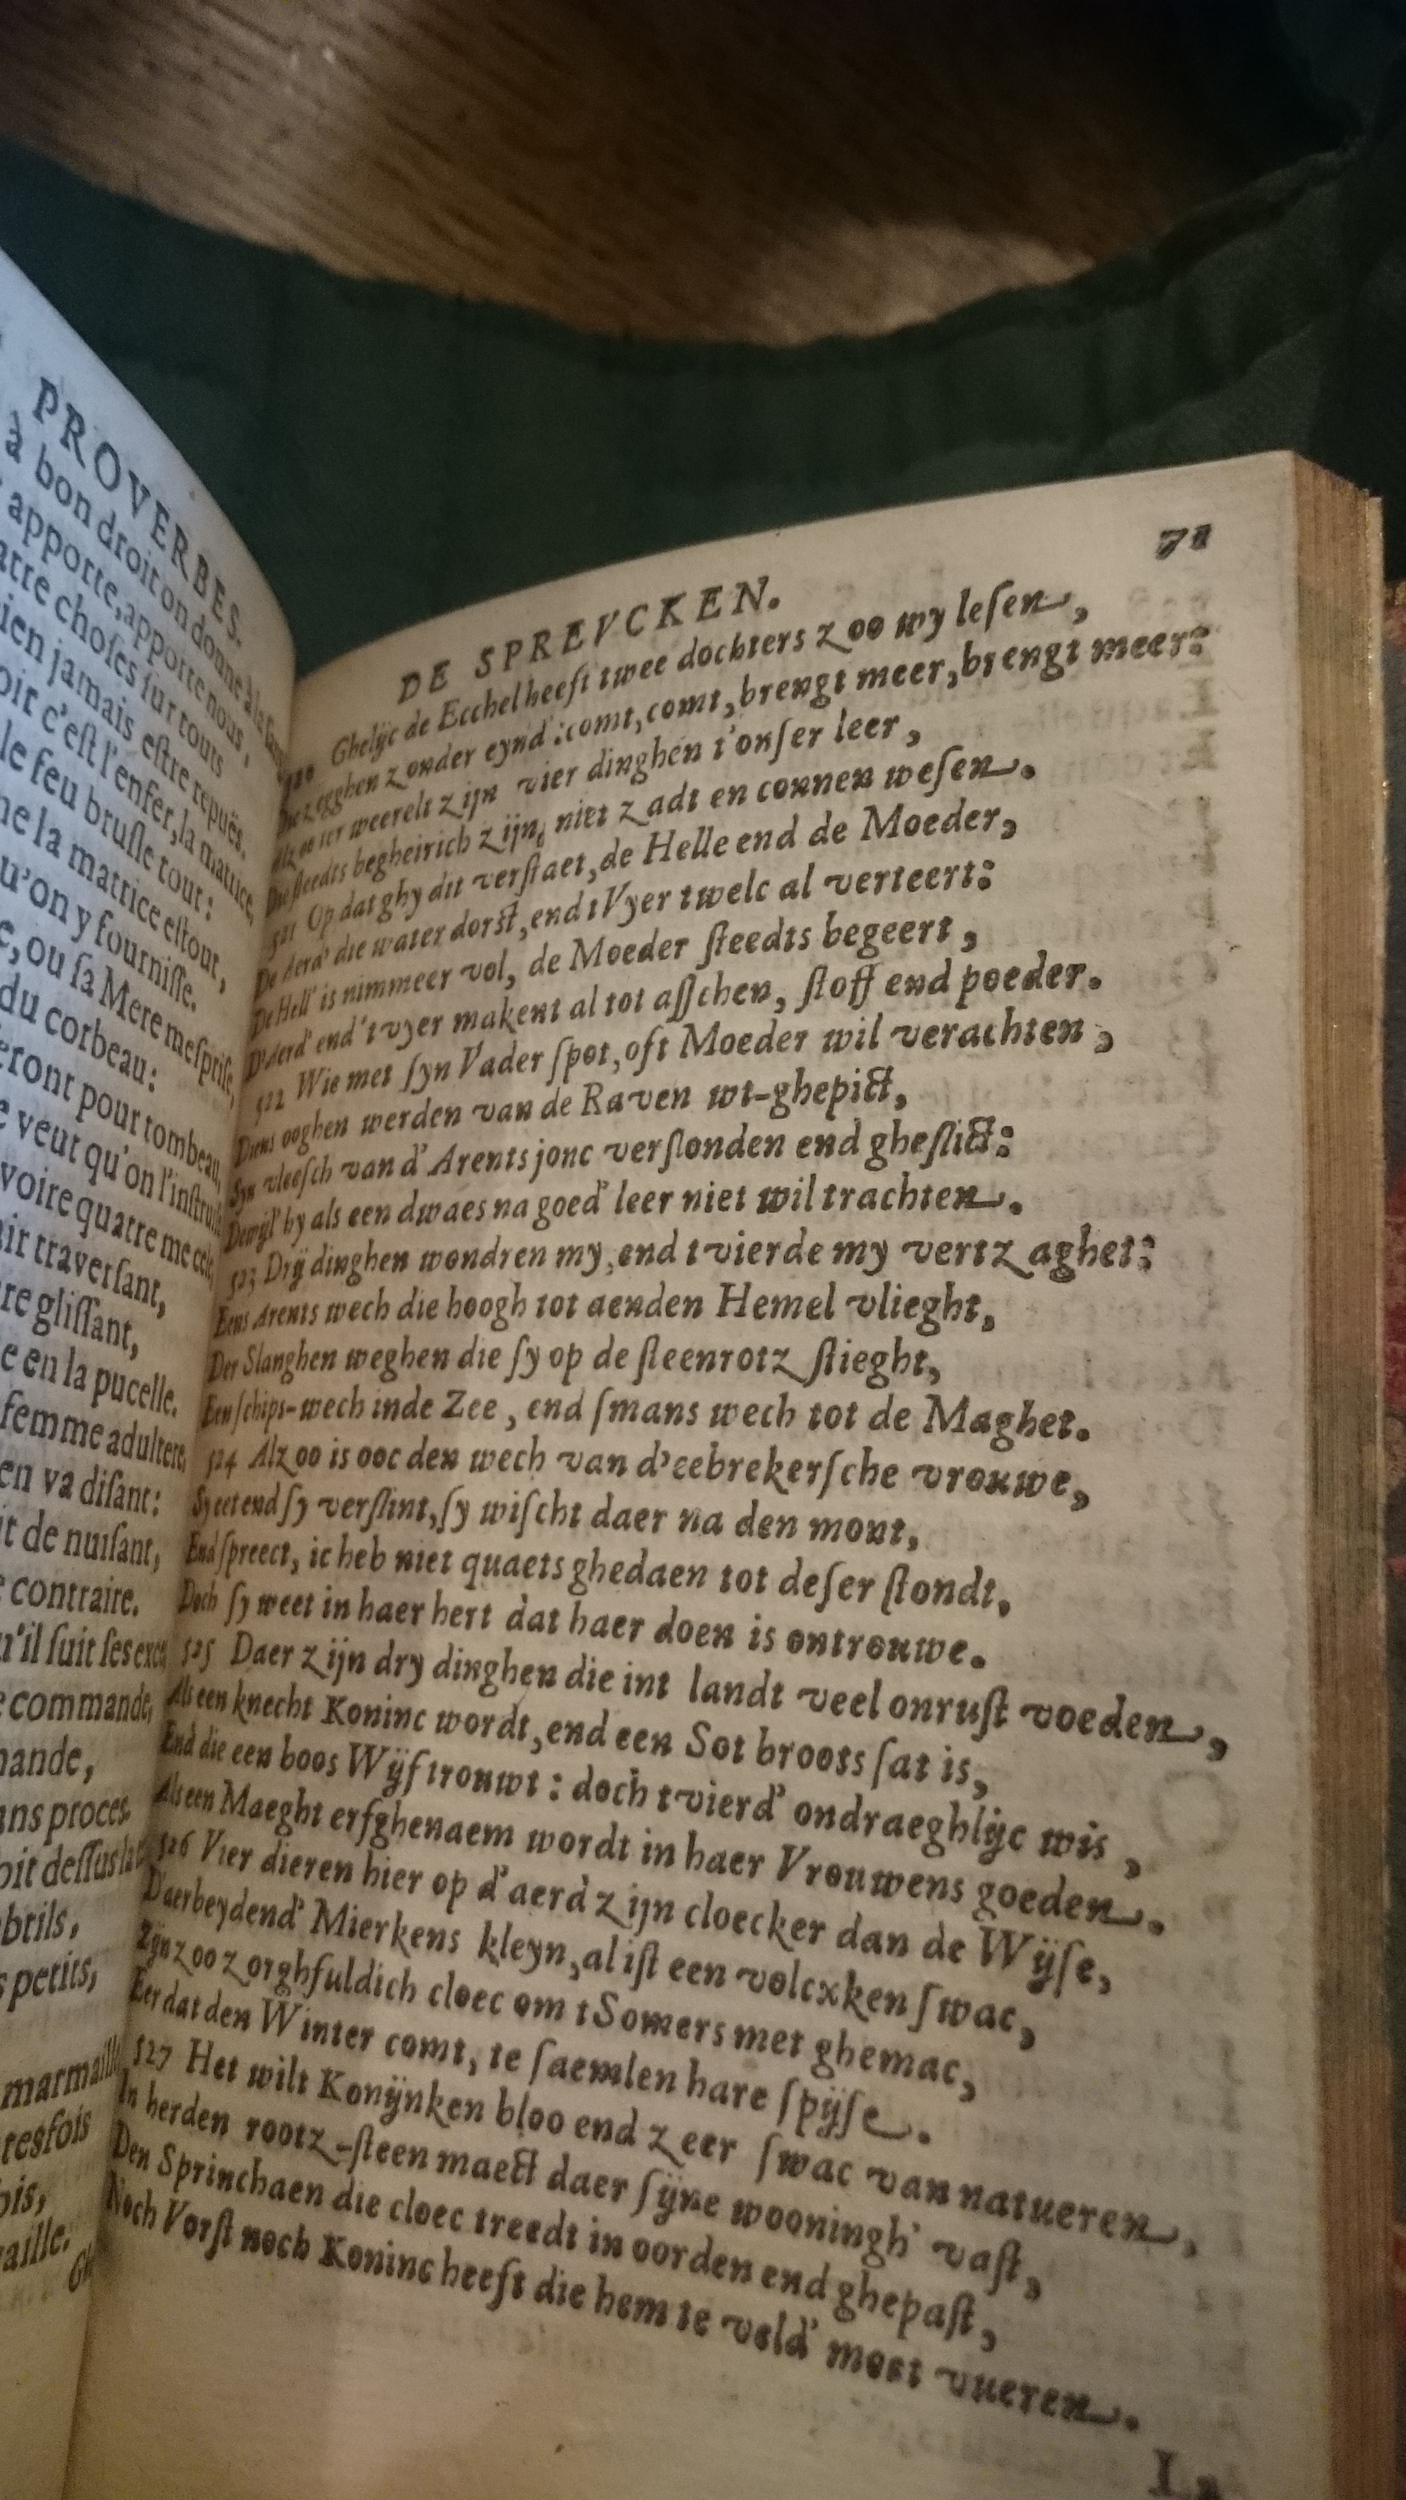 PROVERBES.
à bon droit on donne à la
apporte, apporte nous,
choses sur tout
ien jamais estre repuës.
oit c'est l'enfer, la matrice,
le feu brusle tout:
ne la matrice estout,
qu'on y fournisse.
ou sa Mere mesprise,
du corbeau:
eront pour tombeau,
veut qu'on l'instruise
voire quatre me
air traversant,
re glissant,
e en la pucelle.
femme adultere,
en va disant:
it de nuisant,
contraire.
u'il suit ses
commande,
mande,
ans proces.
oit dessus
btils,
s petits,
marmaille
tesfois
ois,
aille.
DE SPREVCKEN. 71
520 Ghelijc de Ecchel heeft twee dochters zoo wy lesen,
Die zegghen zonder eynd': comt, comt, brengt meer, brengt meer:
Alzoo ter weerelt zijn vier dinghen t'onser leer,
Die steedts begheirich zijn, niet zadt en connen wesen.
521 Op dat ghy dit verstaet, de Helle end de Moeder,
Dederd' die water dorst, end tVyer twelc al verteert:
De Hell' is nimmeer vol, de Moeder steedts begeert,
D'derd' end 't vyer makent al tot asschen, stoff end poeder.
522 Wie met syn Vader spot, oft Moeder wil verachten,
Diens ooghen werden van de Raven wt-ghepict,
Syn vleesch van d'Arents jonc verslonden end gheslict:
Dewijl' hy als een dwaes na goed' leer niet wil trachten.
523 Drij dinghen wondren my, end tvierde my vertzaghet:
Eens Arents wech die hoogh tot aenden Hemel vlieght,
Der Slanghen weghen die sy op de steenrotz stieght,
Een schips-wech inde Zee, end smans wech tot de Maghet.
524 Alzoo is ooc den wech van d'eebrekersche vrouwe,
Sy eet end sy verslint, sy wischt daer na den mont,
End spreect, ic heb niet quaets ghedaen tot deser stondt,
Doch sy weet in haer hert dat haer doen is ontrouwe.
525 Daer zijn dry dinghen die int landt veel onrust voeden,
Als een knecht Koninc wordt, end een Sot broots sat is,
End die een boos Wijf trouwt: doch tvierd' ondraeghlijc wis,
Als een Maeght erfghenaem wordt in haer Vrouwens goeden.
526 Vier dieren hier op d'aerd zijn cloecker dan de Wijse,
D'aerbeydend' Mierkens kleyn, al ist een volcxken swac,
Zijn zoo zorghfuldich cloec om tSomers met ghemac,
Eer dat den Winter comt, te saemlen hare spijse.
527 Het wilt Konijnken bloo end zeer swac van natueren,
In herden rootz-steen maect daer sijne wooningh' vast,
Den Sprinchaen die cloec treedt in oorden end ghepast,
Noch Vorst noch Koninc heeft die hem te veld' moet vueren.